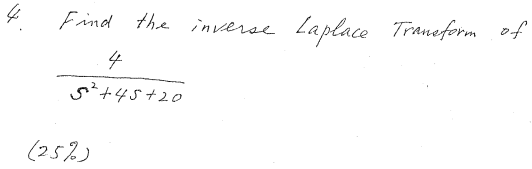 4. Find the inverse Laplace Transform of
4
s²+4s+20
(25%)